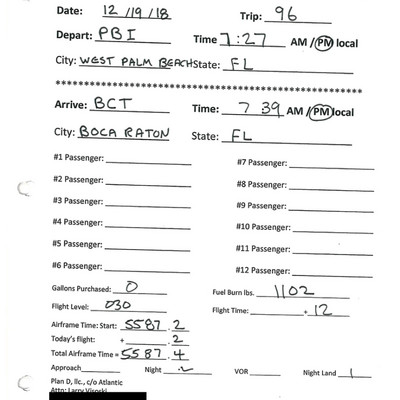 Date: 12/19/18 Trip: 96
Depart: PBI Time 7:27 AM / PM local
City: WEST PALM BEACH State: FL
Arrive: BCT Time: 7 39 AM / PM local
City: BOCA RATON State: FL
#1 Passenger: #7 Passenger:
#2 Passenger: #8 Passenger:
#3 Passenger: #9 Passenger:
#4 Passenger: #10 Passenger:
#5 Passenger: #11 Passenger:
#6 Passenger: #12 Passenger:
Gallons Purchased: 0 Fuel Burn lbs. 1102
Flight Level: 030 Flight Time: .12
Airframe Time: Start: 5587.2
Today's flight: + .2
Total Airframe Time = 5587.4
Approach Night .2 VOR Night Land 1
Plan D, llc., c/o Atlantic
Attn: Larry Visoski